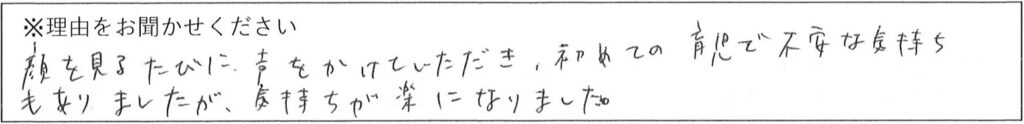 ※理由をお聞かせください
顔を見るたびに、声をかけていただき、初めての育児で不安な気持ち
もありましたが、気持ちが楽になりました。